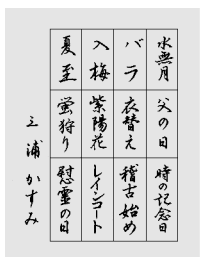 水無月
父の日
時の記念日
バラ
衣替え
稽古始め
入梅
紫陽花
レインコート
夏至
蛍狩り
慰霊の日
三浦かすみ